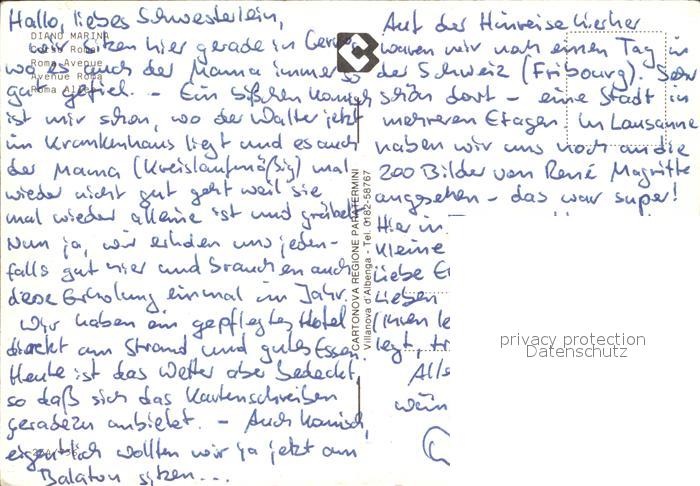 Hallo, liebes Schwesterlein,
wir sitzen hier gerade in
wo es auch der Mama immer so
gut gefiel. – Ein bißchen komisch
ist mir schon, wo der Walter jetzt
im Krankenhaus liegt und es auch
der Mama (Kreislaufmäßig) mal
wieder nicht gut geht weil sie
mal wieder alleine ist und grübelt.
Nun ja, wir erholen uns jeden-
falls gut hier und brauchen auch
diese Erholung einmal im Jahr.
Wir haben ein gepflegtes Hotel
direkt am Strand und gutes Essen.
Heute ist das Wetter aber bedeckt,
so daß sich das Kartenschreiben
geradezu anbietet. – Auch komisch,
eigentlich wollten wir ja jetzt am
Balaton sitzen...
DIANO MARINA
Corso Roma
Roma-Avenue
Avenue Roma
Roma Allee
CARTONOVA REGIONE PARATERMINI
Villanova d'Albenga - Tel. 0182-58767
Auf der Hinreise hierher
waren wir noch einen Tag in
der Schweiz (Fribourg). Sehr
schön dort – eine Stadt in
mehreren Etagen. In Lausanne
haben wir uns noch an die
200 Bilder von René Magritte
angesehen – das war super!
Hier in
kleine
liebe
lieben
(ihnen
legt,
Alle
wün
privacy protection
Datenschutz